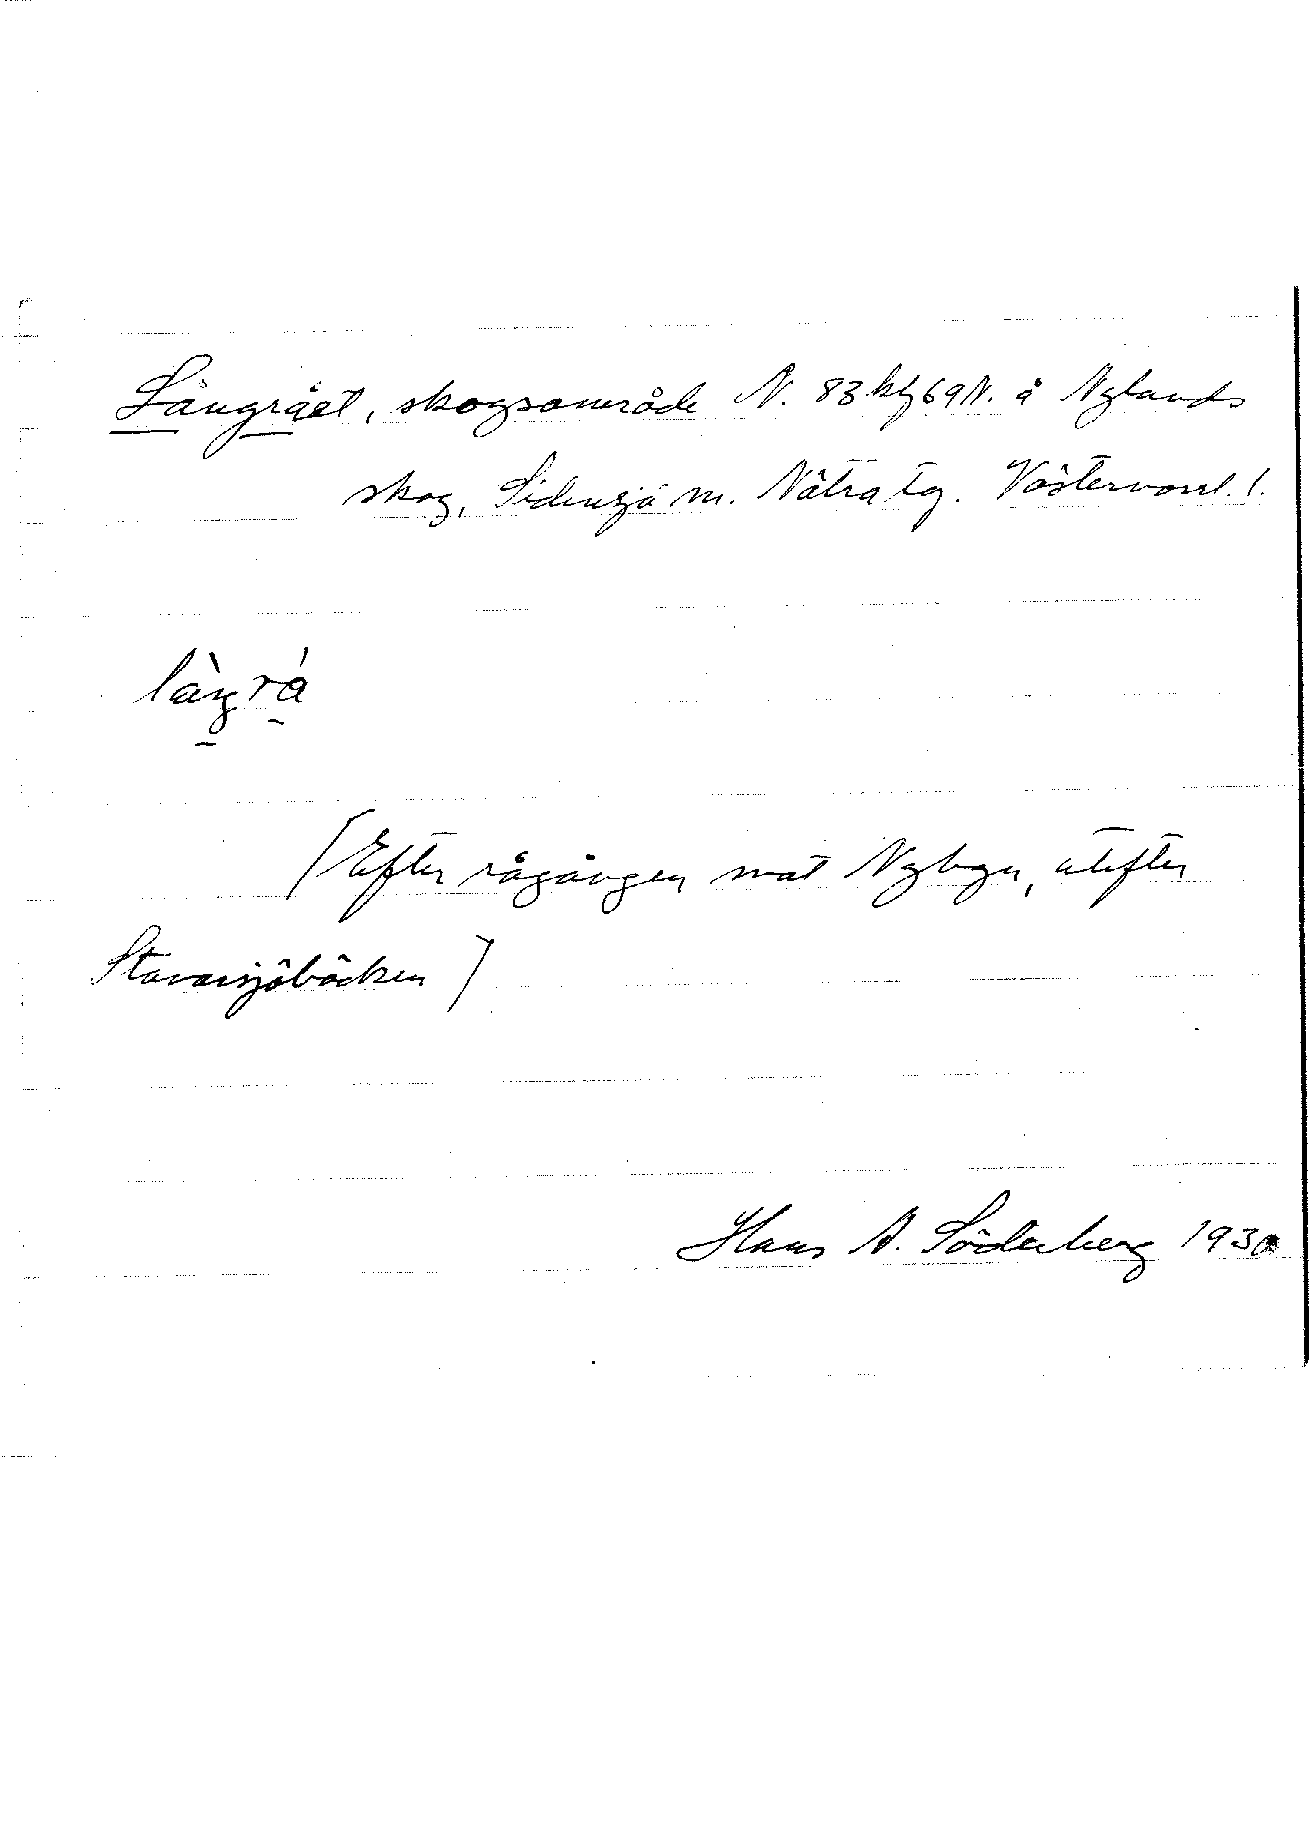 Långrået, skogsområde N. 83 kf 69 N. å Nylands
skog, Sidensjö sn. Nätra tg. Västernorrl. l.
làŋrá
(Efter rågången mot Nybyn, utefter
Stavarsjöbäcken)
Hans A. Söderberg 1930